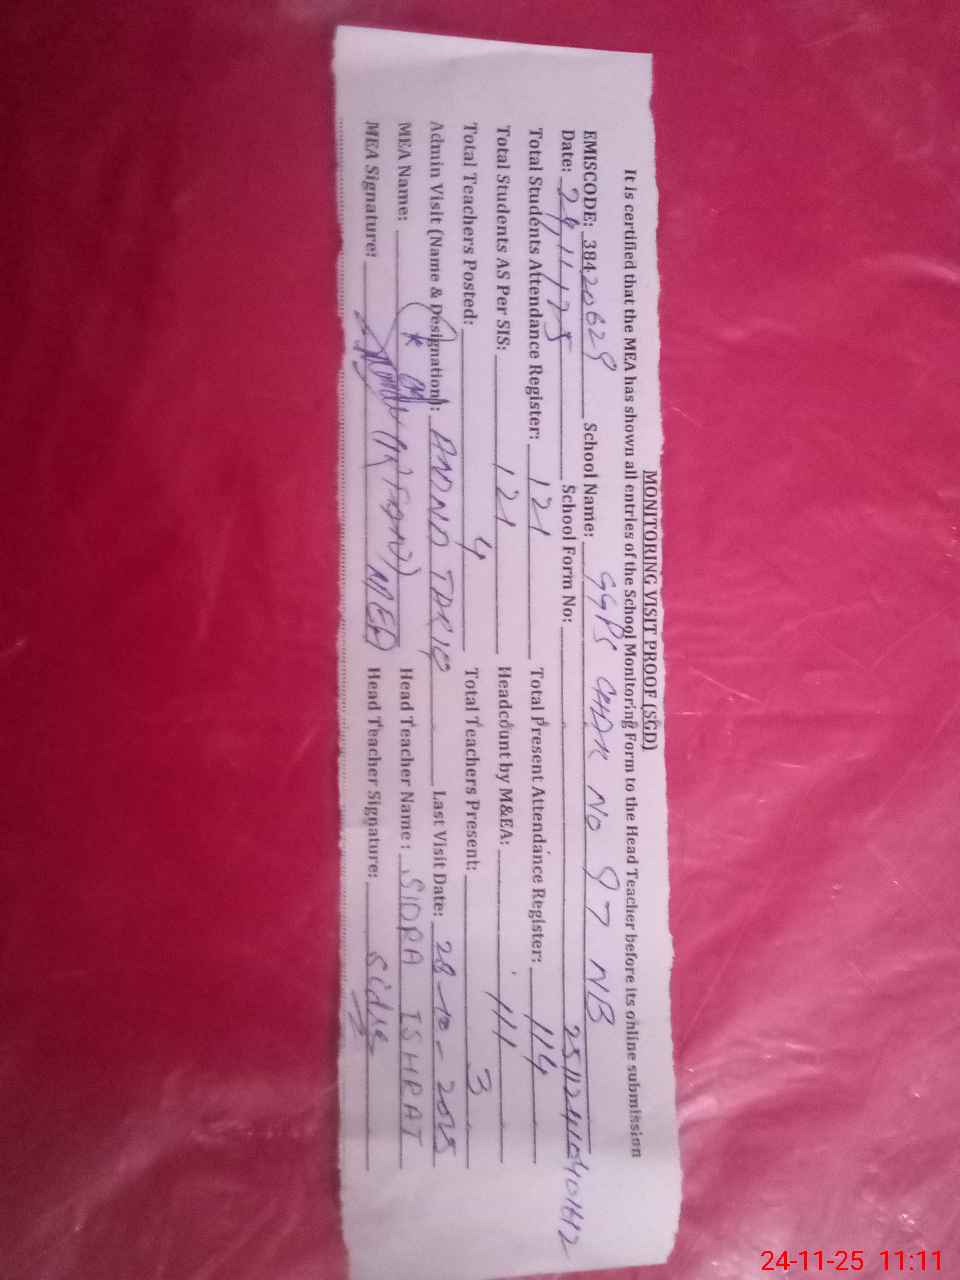 MONITORING VISIT PROOF (SGD)
It is certified that the MEA has shown all entries of the School Monitoring Form to the Head Teacher before its online submission
EMISCODE: 38420629 School Name: GGPS CHAK NO 97 NB
Date: 24/11/25 School Form No: 
Total Students Attendance Register: 121 Total Present Attendance Register: 114
Total Students AS Per SIS: 121 Headcount by M&EA: 111
Total Teachers Posted: 4 Total Teachers Present: 3
Admin Visit (Name & Designation): Last Visit Date: 28-10-2025
MEA Name: Head Teacher Name: SIDRA ISHRAT
MEA Signature: MEA Head Teacher Signature: Sidra
24-11-25 11:11